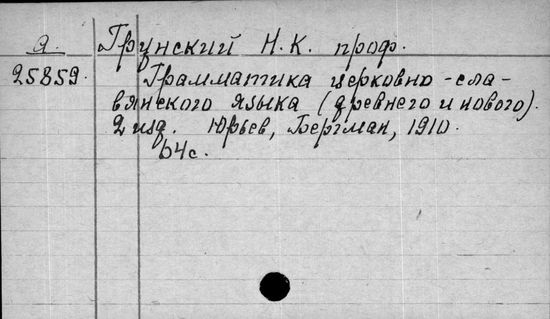 д. Грунский Н.К. проф.
25859. Грамматика церковно-сла-
вянского языка (древнего и нового).
2 изд. Юрьев, Бергман, 1910.
64 с.